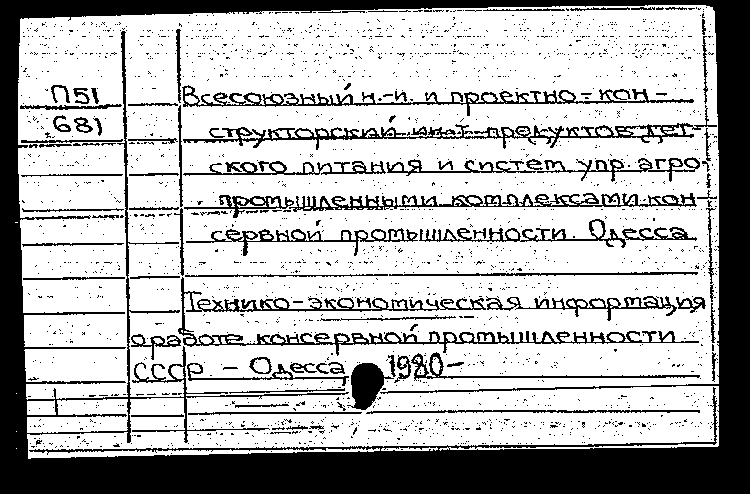 П51 Всесоюзный н.-и. и проектно-кон-
681 структорский ин-т продуктов дет-
ского питания и систем упр. агро-
промышленными комплексами кон-
сервной промышленности. Одесса
Технико-экономическая информация
о работе консервной промышленности
СССР – Одесса 1980–